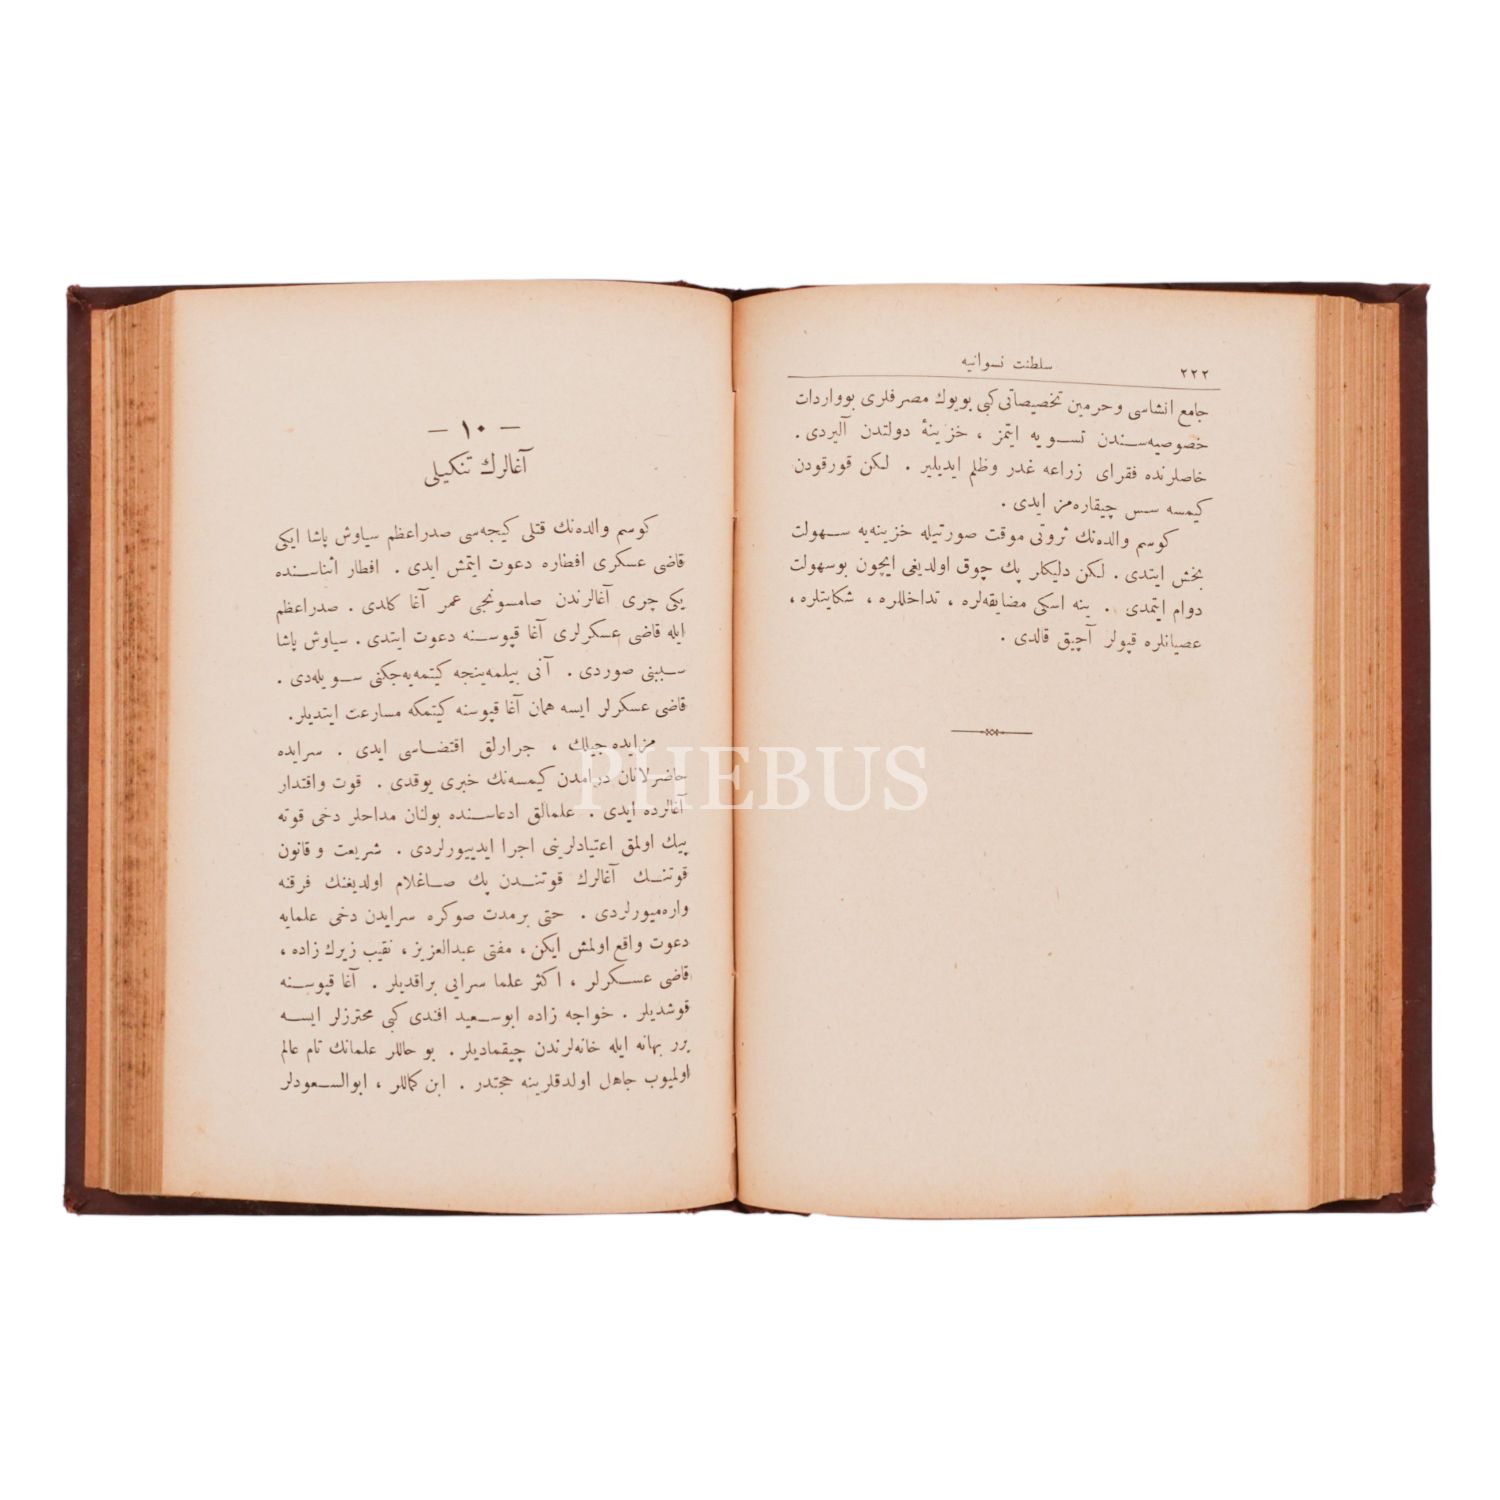 ٢٢٢
سلطنت نسوانیه
جامع انشاسی و حرمین تخصیصاتی کبی بویوك مصرفلری بوواردات
خصوصیه‌سندن تسویه ایتمز ، خزینهٔ دولتدن آلیردی .
خاصلرنده فقرای زراعه غدر وظلم ایدیلیر . لکن قورقودن
کیمسه سس چیقاره‌مز ایدی .
کوسم والده‌نك ثروتی موقت صورتیله خزینه‌یه سهولت
بخش ایتدی . لکن دلیکلر پك چوق اولدیغی ایچون بوسهولت
دوام ایتمدی . ینه اسکی مضایقه‌لره ، تداخللره ، شکایتلره ،
عصیانلره قپولر آچیق قالدی .
— ١٠ —
آغالرك تنکیلی
کوسم والده‌نك قتلی کیجه‌سی صدراعظم سیاوش پاشا ایکی
قاضی عسکری افطاره دعوت ایتمش ایدی . افطار اثناسنده
یکی چری آغالرندن صامسونجی عمر آغا کلدی . صدراعظم
ایله قاضی عسکرلری آغا قپوسنه دعوت ایتدی . سیاوش پاشا
سببنی صوردی . آنی بیلمه‌ینجه کیتمه‌یه‌جکنی سویله‌دی .
قاضی عسکرلر ایسه همان آغا قپوسنه کیتمکه مسارعت ایتدیلر.
مزایده‌جیلك ، جرارلق اقتضاسی ایدی . سرایده
حاضرلانان درامدن کیمسه‌نك خبری یوقدی . قوت واقتدار
آغالرده ایدی . علمالق ادعاسنده بولنان مداحلر دخی قوته
پیك اولمق اعتیادلرینی اجرا ایدییورلردی . شریعت و قانون
قوتنك آغالرك قوتندن پك صاغلام اولدیغنك فرقنه
واره‌میورلردی . حتی برمدت صوکره سرایدن دخی علمایه
دعوت واقع اولمش ایکن ، مفتی عبدالعزیز ، نقیب زیرك زاده ،
قاضی عسکرلر ، اکثر علما سرایی براقدیلر . آغا قپوسنه
قوشدیلر . خواجه زاده ابوسعید افندی کبی محترزلر ایسه
برر بهانه ایله خانه‌لرندن چیقمادیلر . بو حاللر علمانك تام عالم
اولمیوب جاهل اولدقلرینه حجتدر . ابن کماللر ، ابوالسعودلر
PHEBUS